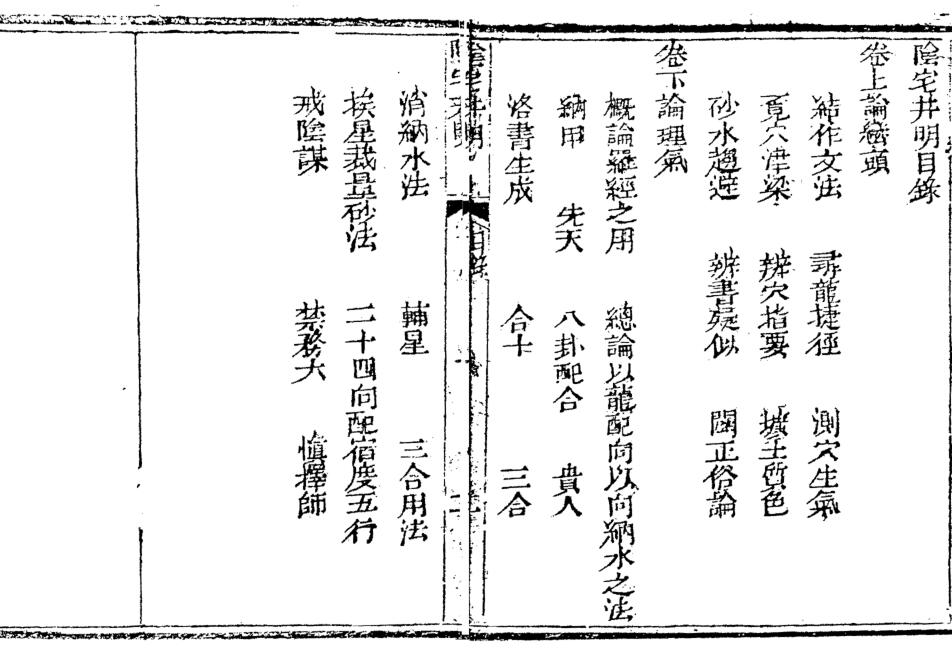 陰宅井明目錄
卷上論巒頭
結作文法 尋龍捷徑 測穴生氣
覓穴津梁 辨穴指要 壙土質色
砂水趨避 辨書疑似 闢正俗論
卷下論理氣
概論羅經之用 總論以龍配向以向納水之法
納甲 先天 八卦配合 貴人
洛書生成 合十 三合
陰宅井明 目錄
消納水法 輔星 三合用法
挨星裁量砂法 二十四向配宿度五行
戒陰謀 禁務大 慎擇師